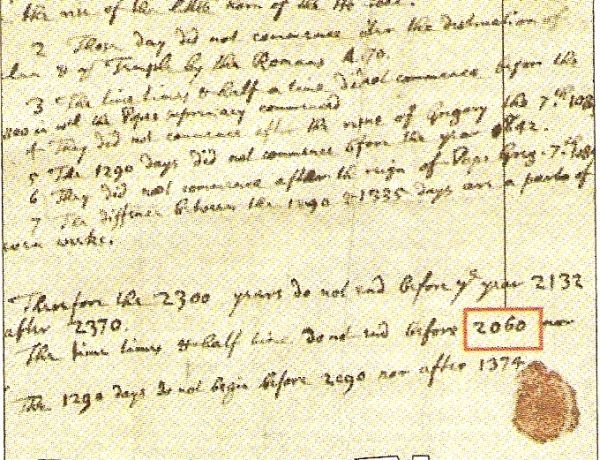 the rise of the little horn of the He Goat.
2 Those day did not commence after the destruction of
& yᵉ Temple by the Romans A. 70.
3 The time times & half a time did not commence before the
800 in wch the Popes supremacy commenced
4 They did not commence after the reigne of Gregory the 7th. 1084
5 The 1290 days did not commence before the year 842.
6 They did not commence after the reign of Pope Greg. 7th. 1084
7 The diffence between the 1290 & 1335 days are a parts of
weeks.
Therefore the 2300 years do not end before yᵉ year 2132
after 2370.
The time times & half time do not end before 2060 nor
The 1290 days do not begin before 2090 nor after 1374